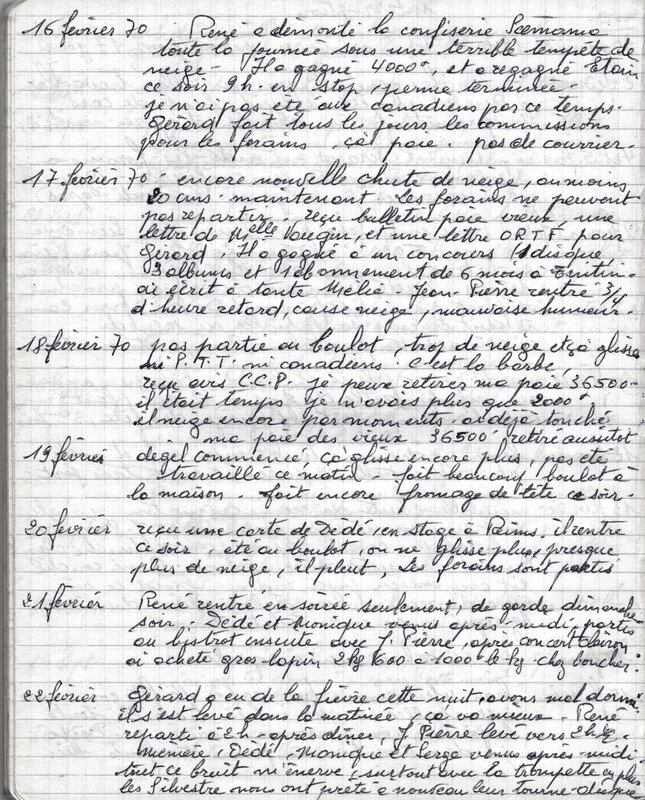 16 février 70 René a démonté la confiserie Scemama
toute la journée sous une terrible tempête de
neige - Il a gagné 4000f, et a regagné Etain
ce soir 9h. en stop, perme terminée.
je n'ai pas été aux canadiens par ce temps.
Gérard fait tous les jours les commissions
pour les forains, çà paie. pas de courrier.
17 février 70 - encore nouvelle chute de neige, au moins
20 cms. maintenant. Les forains ne peuvent
pas repartir. reçu bulletin paie vieux, une
lettre de Melle Vougin, et une lettre ORTF pour
Gérard. Il a gagné à un concours (1 disque
3 albums et 1 abonnement de 6 mois à Tintin -
ai écrit à tante Mélie. Jean-Pierre rentré 3/4
d'heure retard, cause neige, mauvaise humeur.
18 février 70 pas partie au boulot, trop de neige et çà glisse
ni P.T.T. ni canadiens. C'est la barbe,
reçu avis C.C.P. je peux retirer ma paie 36500 -
il était temps je n'avais plus que 2000f
il neige encore par moments. ai déjà touché
ma paie des vieux 36500, retiré aussitôt
19 février dégel commencé, çà glisse encore plus, pas été
travaillé ce matin. fait beaucoup boulot à
la maison. fait encore fromage de tête ce soir.
20 février reçu une carte de Dédé, en stage à Reims, il rentre
ce soir, été au boulot, on ne glisse plus, presque
plus de neige, il pleut, Les forains sont partis
21 février René rentré en soirée seulement, de garde dimanche
soir. Dédé et Monique venus après-midi, partis
au bistrot ensuite avec J. Pierre, après concert clairon
ai acheté gros lapin 2kg 600 à 1000 le kg chez boucher.
22 février Gérard a eu de la fièvre cette nuit, avons mal dormi
il s'est levé dans la matinée, ça va mieux. René
reparti à 2h - après dîner, J Pierre levé vers 2h 1/2.
mémère, Dédé, Monique et Serge venus après-midi
tout ce bruit m'énerve, surtout avec la trompette en plus
les Silvestre nous ont prêté à nouveau leur tourne-disque